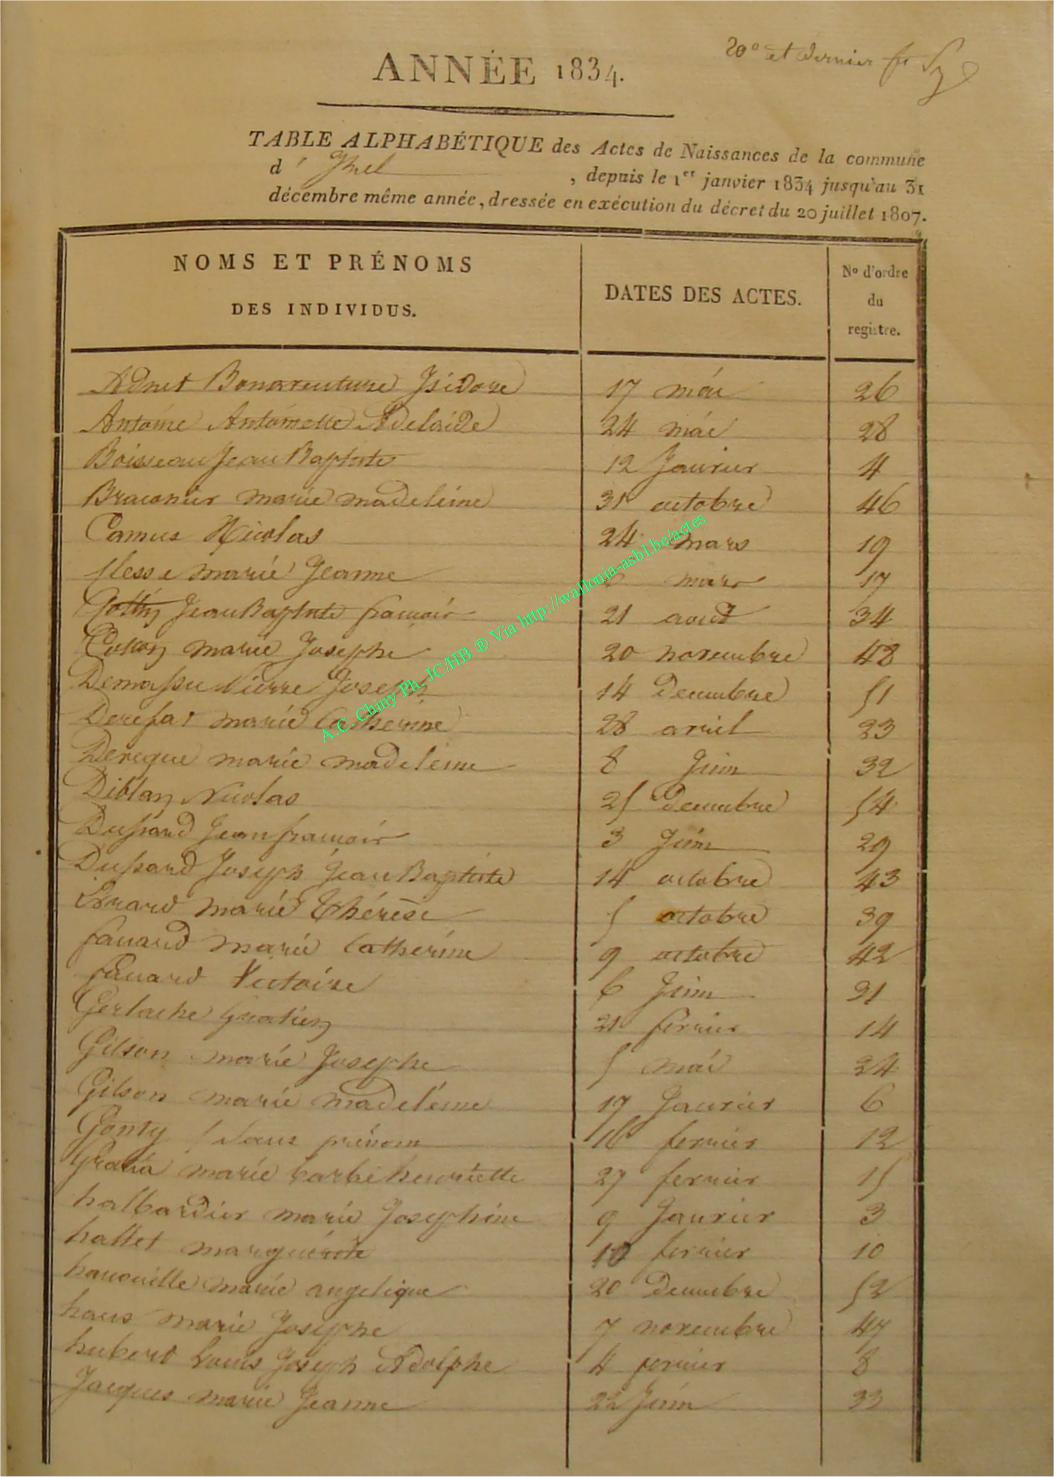 20e et dernier
ANNÉE 1834.
TABLE ALPHABÉTIQUE des Actes de Naissances de la commune
d' Izel , depuis le 1er janvier 1834 jusqu'au 31
décembre même année, dressée en exécution du décret du 20 juillet 1807.
NOMS ET PRÉNOMS DES INDIVIDUS. DATES DES ACTES. No d'ordre du registre.
Adnet Bonaventure Isidore 17 mai 26
Antoine Antoinette Adelaide 24 mai 28
Boisseau Jean Baptiste 12 Janvier 4
Braconier marie madeleine 31 octobre 46
Camus Nicolas 24 mars 19
Clesse marie Jeanne mars 17
Jean Baptiste francois 21 aout 34
marie Josephe 20 novembre 48
Pierre Joseph 14 Decembre 51
marie Catherine 28 avril 23
marie madeleine 8 Juin 32
Nicolas 25 Decembre 54
Dussard Jean francois 3 Juin 29
Dussard Joseph Jean Baptiste 14 octobre 43
Evrard marie Thérèse 5 octobre 39
fauard marie Catherine 9 octobre 42
fauard Victoire 6 Juin 31
Gerlache Gratien 21 fevrier 14
Gilson marie Josephe 5 mai 24
Gilson marie madeleine 17 Janvier 6
Gonry Sans prénom 16 fevrier 12
Gratia marie barbe henriette 27 fevrier 15
halbardier marie Josephine 9 Janvier 3
hallet marguerite 10 fevrier 10
marie angelique 20 Decembre 52
haus marie Josephe 7 novembre 47
hubert Louis Joseph Adolphe 4 fevrier 8
Jacques marie Jeanne 22 Juin 33
A.C. Chiny Ph. JC/HB ® Via http://wallonia-asbl.be/actes